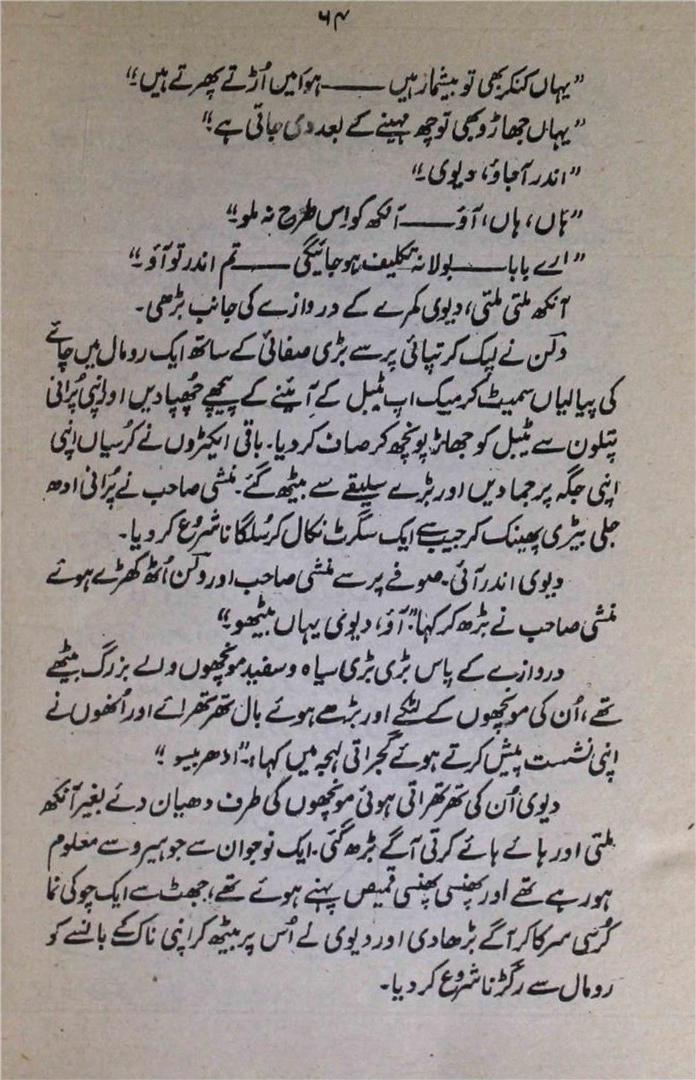 ۶۴
”یہاں کنکر بھی تو بیشمار ہیں ——— ہوا میں اُڑتے پھرتے ہیں۔“
”یہاں جھاڑو بھی تو چھ مہینے کے بعد دی جاتی ہے۔“
”اندر آجاؤ، دیوی۔“
”ہاں، ہاں، آؤ —— آنکھ کو اِس طرح نہ ملو۔“
”اے بابا —— بولا نہ تکلیف ہو جائیگی —— تم اندر تو آؤ۔“
آنکھ ملتی ملتی، دیوی کمرے کے دروازے کی جانب بڑھی۔
وِلن نے لپک کر تپائی پر سے بڑی صفائی کے ساتھ ایک رومال میں چائے
کی پیالیاں سمیٹ کر میک اپ ٹیبل کے آئینے کے پیچھے چھپا دیں اور اپنی پُرانی
پتلون سے ٹیبل کو جھاڑ پونچھ کر صاف کر دیا۔ باقی ایکٹروں نے کرسیاں اپنی
اپنی جگہ پر جما دیں اور بڑے سلیقے سے بیٹھ گئے۔ منشی صاحب نے پُرانی ادھ
جلی بیڑی پھینک کر جیب سے ایک سگرٹ نکال کر سُلگانا شروع کر دیا۔
دیوی اندر آئی۔ صوفے پر سے منشی صاحب اور وِلن اُٹھ کھڑے ہوئے
منشی صاحب نے بڑھ کر کہا: ”آؤ، دیوی یہاں بیٹھو۔“
دروازے کے پاس بڑی بڑی سیاہ و سفید مونچھوں والے بزرگ بیٹھے
تھے، اُن کی مونچھوں کے لٹکے اور بڑھے ہوئے بال تھرتھرائے اور اُنھوں نے
اپنی نشست پیش کرتے ہوئے گجراتی لہجہ میں کہا، ”ادھر بیسو۔“
دیوی اُن کی تھرتھراتی ہوئی مونچھوں کی طرف دھیان دئے بغیر آنکھ
ملتی اور ہائے ہائے کرتی آگے بڑھ گئی۔ ایک نوجوان سے جو ہیرو سے معلوم
ہو رہے تھے اور پھنسی پھنسی قمیص پہنے ہوئے تھے، جھٹ سے ایک چوکی نما
کُرسی سرکا کر آگے بڑھا دی اور دیوی نے اُس پر بیٹھ کر اپنی ناک کے بانسے کو
رومال سے رگڑنا شروع کر دیا۔